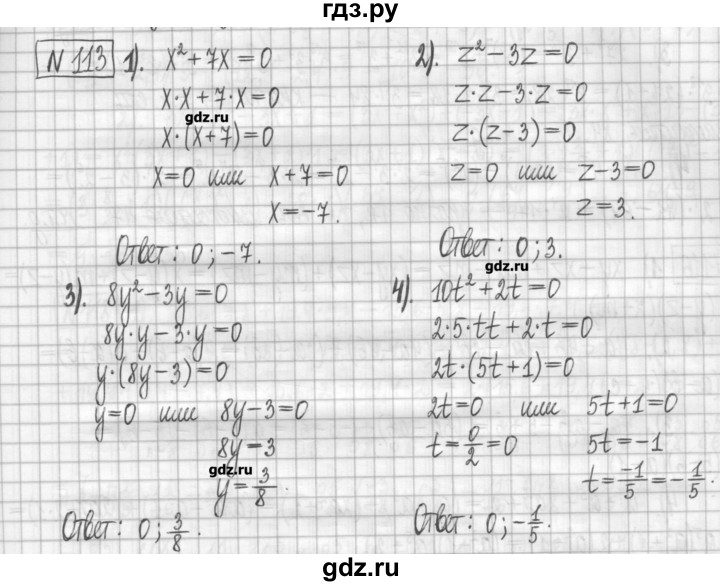 гдз.ру
N 113 1). x² + 7x = 0
x·x + 7·x = 0
gdz.ru
x·(x+7) = 0
x = 0 или x + 7 = 0
x = -7.
Ответ: 0 ; -7.
2). z² - 3z = 0
z·z - 3·z = 0
z·(z-3) = 0
z = 0 или z - 3 = 0
z = 3.
Ответ: 0 ; 3.
gdz.ru
3). 8y² - 3y = 0
8y·y - 3·y = 0
y·(8y-3) = 0
y = 0 или 8y - 3 = 0
8y = 3
gdz.ru
y = 3/8.
Ответ: 0 ; 3/8.
4). 10t² + 2t = 0
2·5·tt + 2·t = 0
2t·(5t+1) = 0
2t = 0 или 5t + 1 = 0
t = 0/2 = 0 5t = -1
t = -1/5 = -1/5.
Ответ: 0 ; -1/5.
gdz.ru